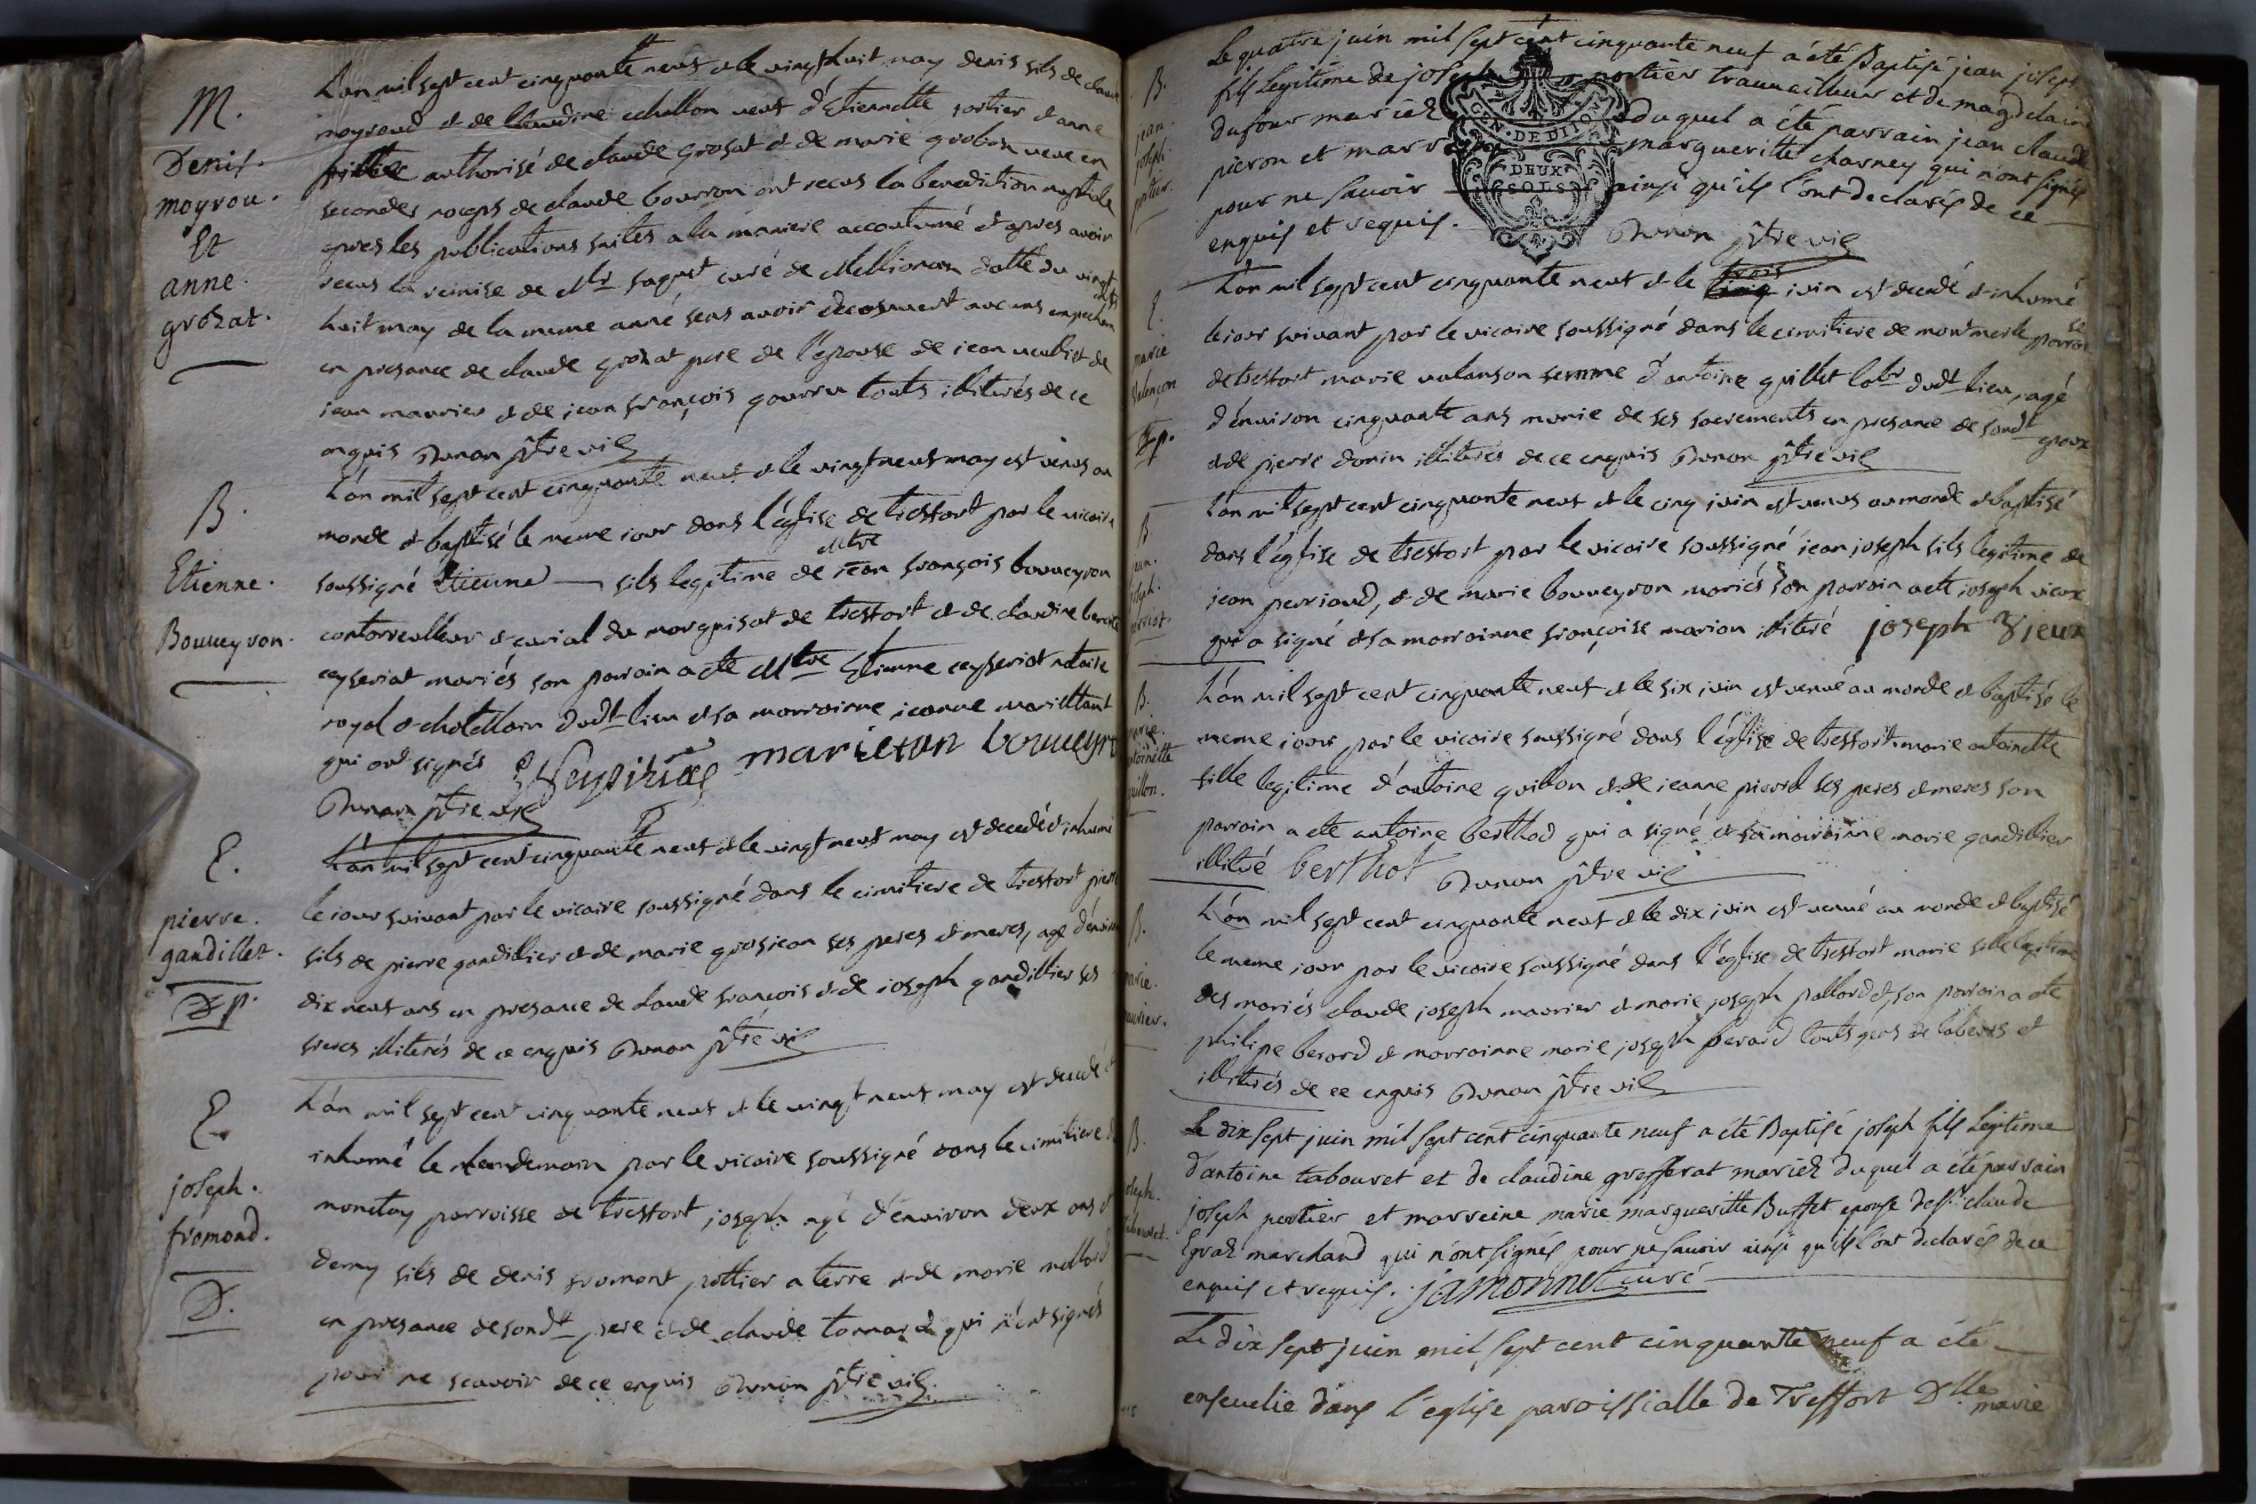 M.
Denis.
moyrou.
Et
anne.
grozat.
L'an mil sept cent cinquante neuf et le vingt huit may denis fils de claude
moyroud et de claudine echallon veuf d'Etiennette portier et anne
authorisé de claude grosat et de marie grobon veve en
secondes noceps de claude bourron ont recus la benediction nuptiale
apres les publications faites a la maniere accoutumé et apres avoir
recus la remise de Mr curé de Meillionas datté du vingt
huit may de la meme anné sens avoir decouvert aucuns empechem
en presance de claude grosat pere de l'epouse de jean de
jean maurier et de jean françois gourru touts illiterés de ce
enquis Dunan ptre vic
B.
Etienne.
Bouueyron.
L'an mil sept cent cinquante neuf et le vingt neuf may est venus au
monde et baptisé le meme jour dans l'église de tresfort par le vicaire
soussigné Etienne fils legitime de Mtre jean françois bouueyron
contorreolleur et curial du marquisat de tresfort et de claudine
ceyseriat mariés son parrain a ete Mtre Etienne ceyseriat notaire
royal & chatellain dudt lieu et sa marrainne jeanne mariettant
qui ont signés marietan bouueyron
Dunan ptre vic
E.
pierre.
gandillet.
D p.
L'an mil sept cent cinquante neuf et le vingt neuf may est decedé et inhumé
le jour suivant par le vicaire soussigné dans le cimitiere de tresfort pierre
fils de pierre gandillier et de marie grosjean ses peres et meres, agé d'environ
dix neuf ans en presance de claude françois et de joseph gandillier ses
freres illiterés de ce enquis Dunan ptre vic
E.
joseph.
fromond.
D.
L'an mil sept cent cinquante neuf et le vingt neuf may est decedé et
inhumé le lendemain par le vicaire soussigné dans le cimitiere
montoy parroisse de tresfort joseph agé d'environ deux ans et
demy fils de denis fromont pottier a terre et de marie
en presance de sondt pere et de claude qui n'ont signés
pour ne scavoir de ce enquis Dunan ptre vic
B.
jean.
joseph.
portier.
Le quatre juin mil sept cent cinquante neuf a été Baptisé jean joseph
fils Legitime de joseph portier trauailleur et de magdelaine
dufour mariéz duquel a été parrain jean claude
pieron et marraine marguerite charney qui n'ont signés
pour ne sauoir ainsi qu'ils l'ont declarés de ce
enquis et requis. Dunan ptre vic
GEN. DE DIJON
DEUX
SOLS
E.
marie
valençon
D p.
L'an mil sept cent cinquante neuf et le trois juin est decedé et inhumé
le jour suivant par le vicaire soussigné dans le cimitiere de montmerle parroisse
de tresfort marie valanson femme d'antoine guillet labr dudt lieu, agé
d'environ cinquante ans munie de ses sacrements en presance de sondt epoux
et de pierre donin illiterés de ce enquis Dunan ptre vic
B
jean.
joseph.
L'an mil sept cent cinquante neuf et le cinq juin est venus au monde et baptisé
dans l'église de tresfort par le vicaire soussigné jean joseph fils legitime de
jean perriaud, et de marie bouueyron mariés son parrain a ete joseph vieux
qui a signé et sa marrainne françoise marion illiteré joseph Vieux
B.
marie.
antoinette
guillon.
L'an mil sept cent cinquante neuf et le six juin est venué au monde et baptisée le
meme jour par le vicaire soussigné dans l'église de tresfort marie antoinette
fille legitime d'antoine guillon et de jeanne pierrel ses peres et meres son
parrain a ete antoine berthod qui a signé et sa marrainne marie gandillier
illiteré berthot Dunan ptre vic
B.
marie.
maurier.
L'an mil sept cent cinquante neuf et le dix juin est venué au monde et baptisé
le meme jour par le vicaire soussigné dans l'église de tresfort marie fille legitime
des mariés claude joseph maurier et marie joseph pallord et son parrain a ete
philipe berard et marrainne marie joseph berard touts gens de labeurs et
illiterés de ce enquis Dunan ptre vic
B.
joseph.
tabouret.
Le dix sept juin mil sept cent cinquante neuf a été Baptisé joseph fils Legitime
d'antoine tabouret et de claudine grosserat mariéz duquel a été parrain
joseph portier et marreine marie margueritte Buffet epouse de sr claude
Egraz marchand qui n'ont signés pour ne sauoir ainsi qu'ils l'ont declarés de ce
enquis et requis. jamonnet curé
Le dix sept juin mil sept cent cinquante neuf a été
enseuelie dans l'eglise paroissialle de Treffort Dlle marie